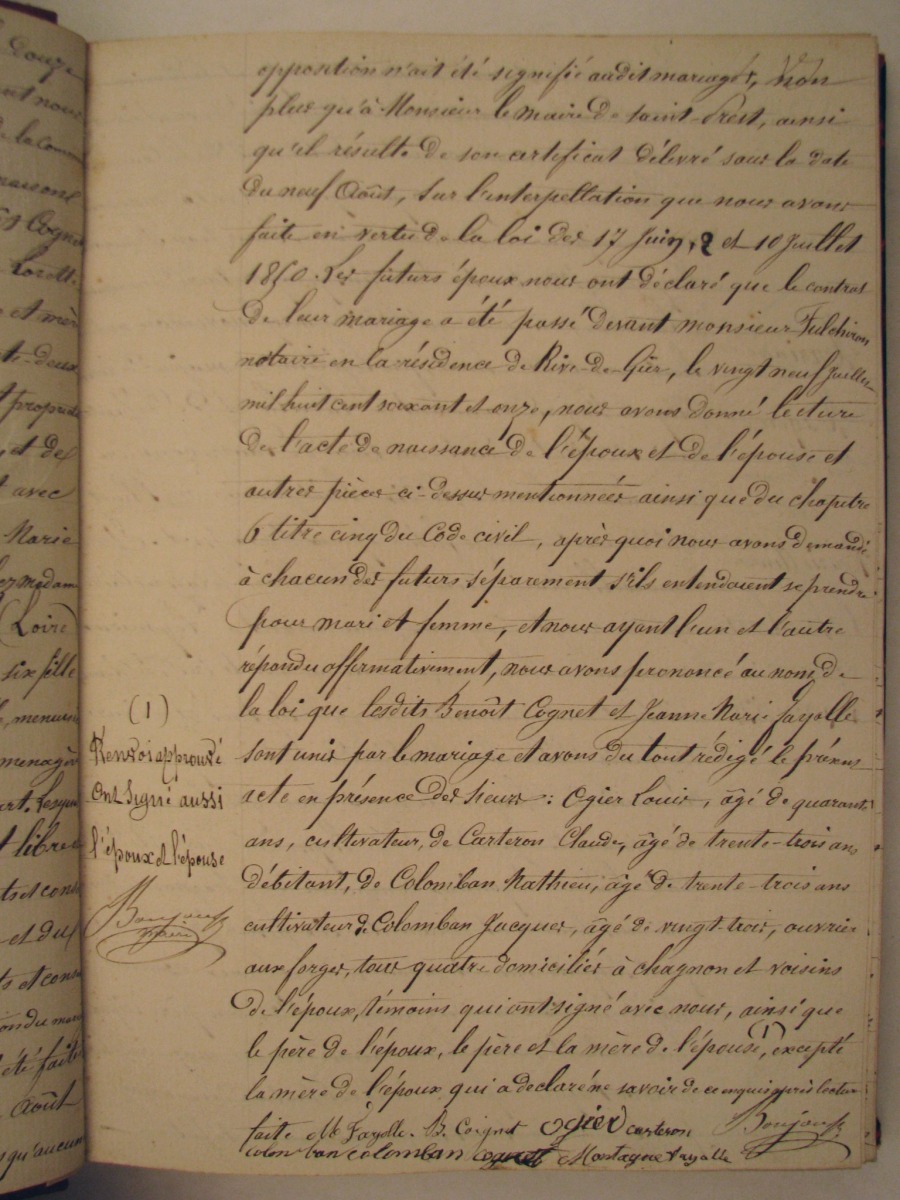 opposition n'ait été signifié audit mariage, Non
plus qu'à Monsieur le maire de Saint-Prest, ainsi
qu'il résulte de son certificat délivré sous la date
du neuf Août, Sur l'interpellation que nous avons
faite en vertu de la loi des 17 Juin, 2 et 10 Juillet
1850. Les futurs époux nous ont déclaré que le contrat
de leur mariage a été passé devant monsieur Fulchiron
notaire en la résidence de Rive-de-Gier, le vingt neuf Juillet
mil huit cent soixant et onze, nous avons donné lecture
de l'acte de naissance de l'époux et de l'épouse et
autres pièces ci-dessus mentionnées ainsi que du chapitre
6 titre cinq du Code civil, après quoi nous avons demandé
à chacun des futurs séparement s'ils entendaient se prendre
pour mari et femme, et nous ayant l'un et l'autre
répondu affirmativement, nous avons prononcé au nom de
la loi que lesdits Benoît Cognet et Jeanne Marie Fayolle
sont unis par le mariage et avons du tout rédigé le présent
acte en présence des sieurs : Ogier Louis, âgé de quarante
ans, cultivateur, de Carteron Claude, âgé de trente-trois ans
débitant, de Colomban Mathieu, âgé de trente-trois ans
cultivateur, de Colomban Jacques, âgé de vingt-trois, ouvrier
aux forges, tous quatre domiciliés à chagnon et voisins
de l'époux, témoins qui ont signé avec nous, ainsi que
le père de l'époux, le père et la mère de l'épouse, (1) excepté
la mère de l'époux qui a déclaré ne savoir de ce enquis après lecture
faite M Fayolle. B. Coignet Ogier Carteron Bonjour
colomban colomban Montagne Fayolle
(1)
Renvoi approuvé
Ont signé aussi
l'époux et l'épouse
Bonjour
maire